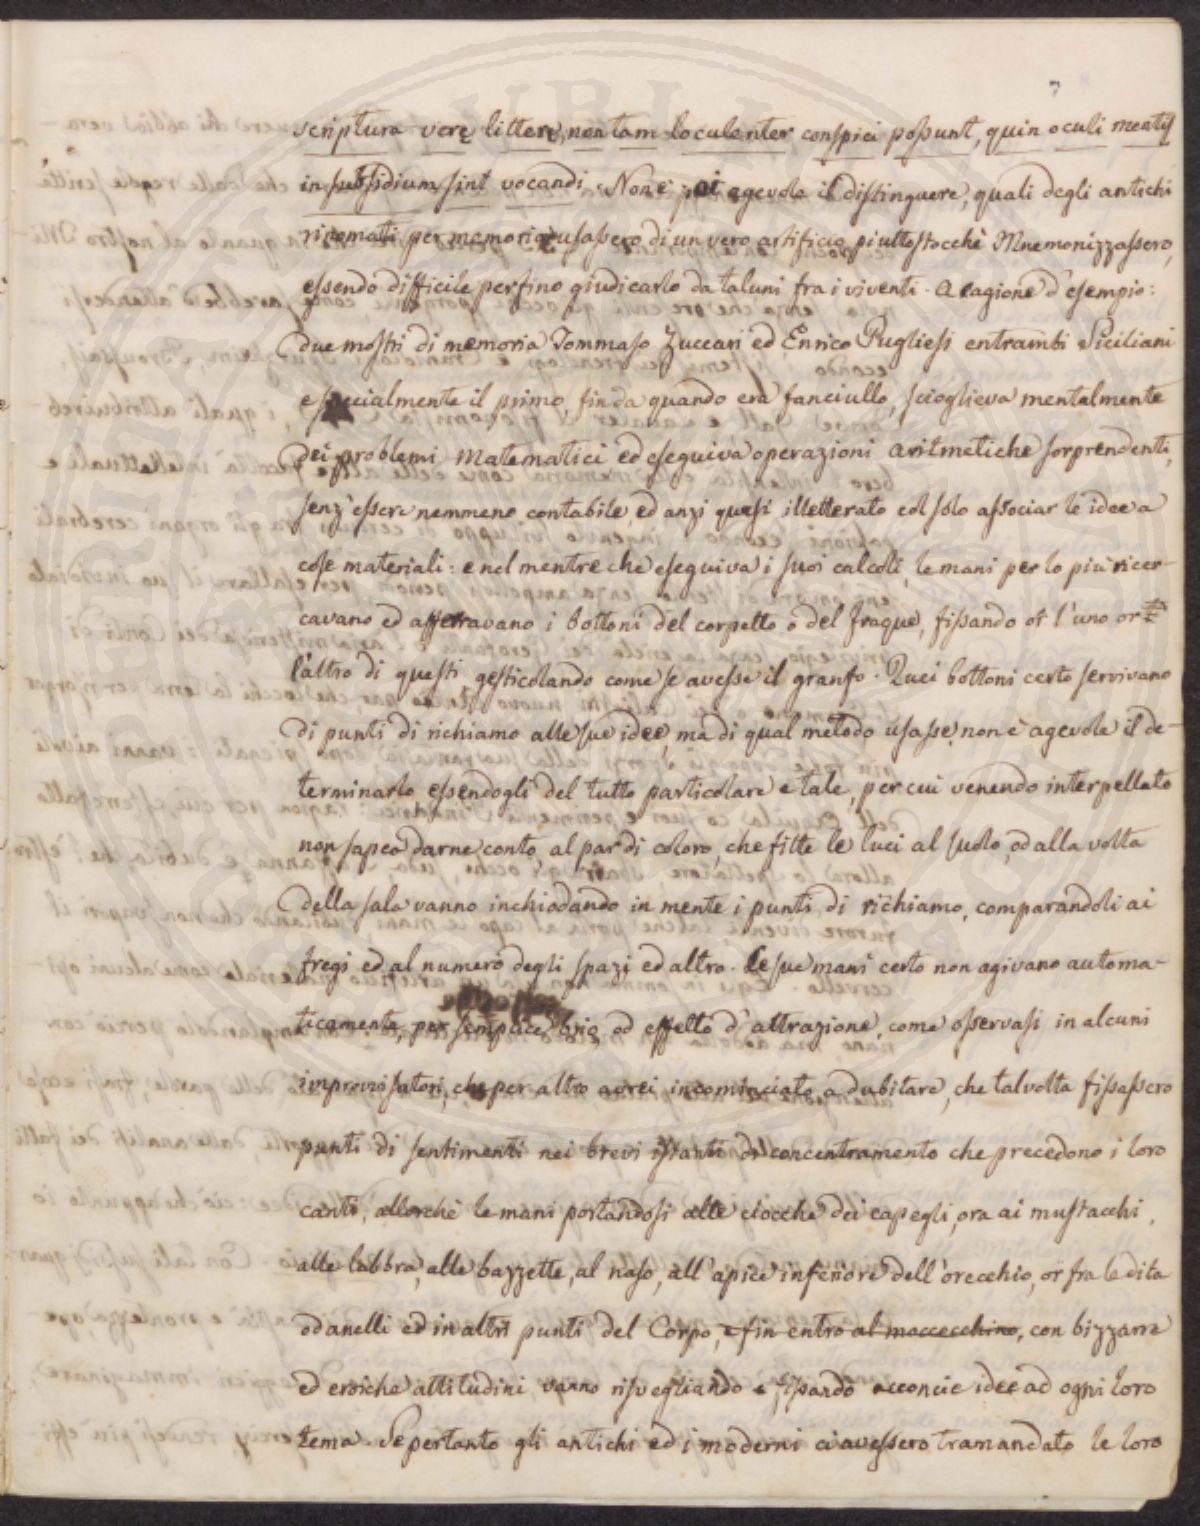 7
scriptura verę litterę, non tam loculenter conspici possunt, quin oculi mentis
in subsidium sint vocandi. Non è poi agevole il distinguere, quali degli antichi
rinomati per memoria usassero di un vero artificio piuttostocchè Mnemonizzassero,
essendo difficile perfino giudicarlo da taluni fra i viventi. A cagione d'esempio:
due mostri di memoria Tommaso Zuccari ed Enrico Pugliesi entrambi Siciliani
especialmente il primo, fin da quando era fanciullo, scioglieva mentalmente
dei problemi matematici ed eseguiva operazioni aritmetiche sorprendenti,
senz'essere nemmeno contabile, ed anzi quasi illetterato col solo associar le idee a
cose materiali: e nel mentre che eseguiva i suoi calcoli, le mani per lo più ricer-
cavano ed afferravano i bottoni del corpetto o del fraque, fissando or l'uno or
l'altro di questi gesticolando come se avesse il granfo. Quei bottoni certo servivano
di punti di richiamo alle sue idee, ma di qual metodo usasse, non è agevole il de-
terminarlo essendogli del tutto particolare e tale, per cui venendo interpellato
non sapea darne conto, al par di coloro, che fitte le luci al suolo, od alla volta
della sala vanno inchiodando in mente i punti di richiamo, comparandoli ai
fregi ed al numero degli spazi ed altro. Le sue mani certo non agivano automa-
ticamente, per semplice brio, od effetto d'attrazione, come osservasi in alcuni
improvisatori, che per altro avrei incominciato a dubitare, che talvolta fissassero
punti di sentimenti nei brevi istanti di concentramento che precedono i loro
canti, allorchè le mani portandosi alle ciocche dei capegli, ora ai mustacchi,
alle labbra, alle bazzette, al naso, all'apice inferiore dell'orecchio, or fra le dita
od anelli ed in altri punti del Corpo, e fin entro al moccecchino, con bizzarre
ed eroiche attitudini vanno risvegliando e fissando acconcie idee ad ogni loro
tema. Se pertanto gli antichi ed i moderni ci avessero tramandato le loro